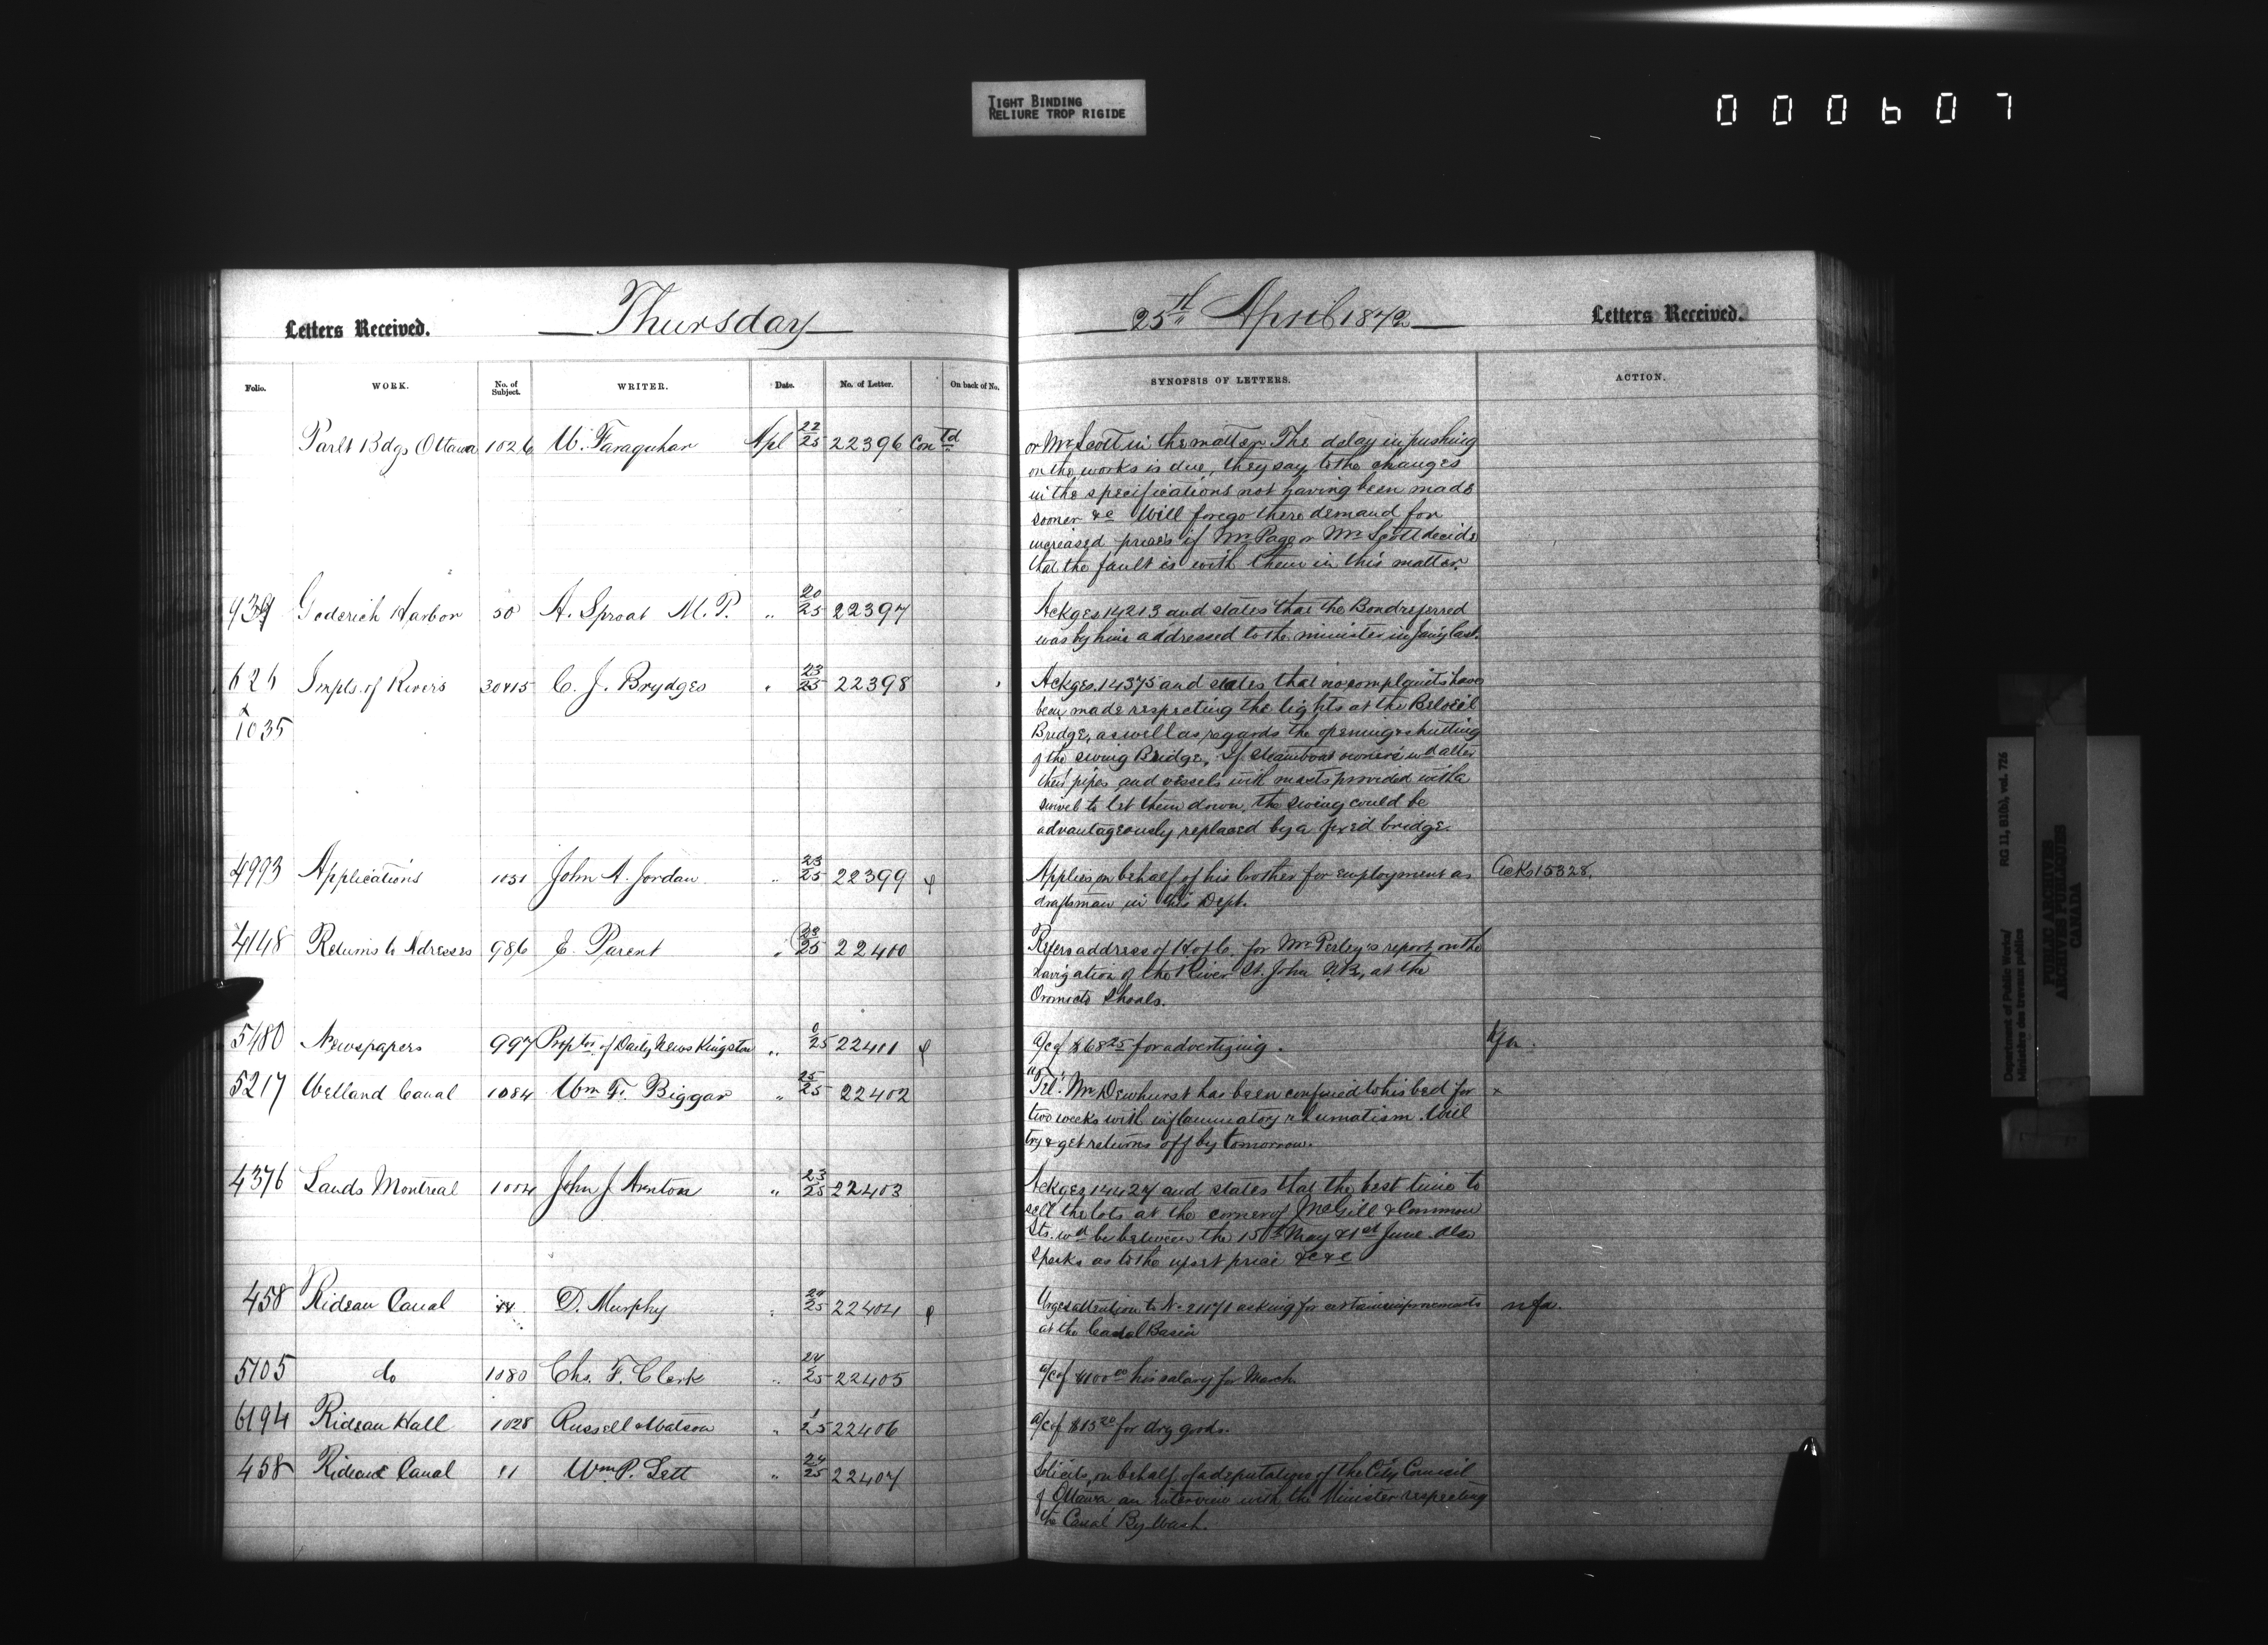 TIGHT BINDING
RELIURE TROP RIGIDE
000607
Letters Received.
Thursday
25th April 1872
Letters Received.
Folio. WORK. No. of Subject. WRITER. Date. No. of Letter. On back of No. SYNOPSIS OF LETTERS. ACTION.
Parlt Bdgs Ottawa 1026 W. Faraquhar Apl 22/25 22396 Contd
or Mr Scott in the matter. The delay in pushing
on the works is due, they say, to the changes
in the specifications not having been made
sooner &c Will forego there demand for
increased prices if Mr Page or Mr Scott decide
that the fault is with them in this matter.
939 Goderich Harbor 50 A. Sproat M.P. " 20/25 22397
Ackges 14213 and states that the Bond referred
was by him addressed to the minister in Jany last.
626 Impts. of Rivers 30415 C. J. Brydges " 23/25 22398
&
1035
Ackges. 14375 and states that no complaints have
been made respecting the lights at the Beloeil
Bridge, as well as regards the opening & shutting
of the swing Bridge. If steamboat owners wd alter
their pipes and vessels with masts provided with a
swivel to let them down, the swing could be
advantageously replaced by a fixed bridge.
4993 Applications 1051 John A. Jordan " 23/25 22399
Applies on behalf of his brother for employment as
draftsman in this Dept.
Ack 15328.
4148 Returns to Adresses 986 E. Parent " 23/25 22400
Refers address of H of C. for Mr Perley's report on the
navigation of the River St. John N.B, at the
Oromocto Shoals.
5480 Newspapers 997 Proptrs. of Daily News Kingston " 0/25 22401
a/c of $68 25 for advertizing.
nfa.
5217 Welland Canal 1084 Wm F. Biggar " 25/25 22402
Tel. Mr Dewhurst has been confined to his bed for
two weeks with inflammatory rhumatism. Will
try & get returns off by tomorrow.
x
4376 Lands Montreal 1004 John J Arnton " 23/25 22403
Ackges 14427 and states that the best time to
sell the lots at the corner of McGill & Common
Sts. wd be between the 15th May & 1st June. Also
speaks as to the upset price &c &c
458 Rideau Canal D. Murphy " 24/25 22404
Urges attention to No 21171 asking for certain improvements
at the Canal Basin
nfa.
5105 do 1080 Chs. F. Clerk " 24/25 22405
a/c of $100 00 his salary for March.
6194 Rideau Hall 1028 Russell & Watson " 1/25 22406
a/c of $13 20 for dry goods.
458 Rideau Canal 81 Wm P. Lett " 24/25 22407
Solicits, on behalf of a deputation of the City Council
of Ottawa an interview with the Minister respecting
the Canal By Wash.
Department of Public Works/
Ministère des travaux publics
RG 11, B1(b), vol. 726
PUBLIC ARCHIVES
ARCHIVES PUBLIQUES
CANADA